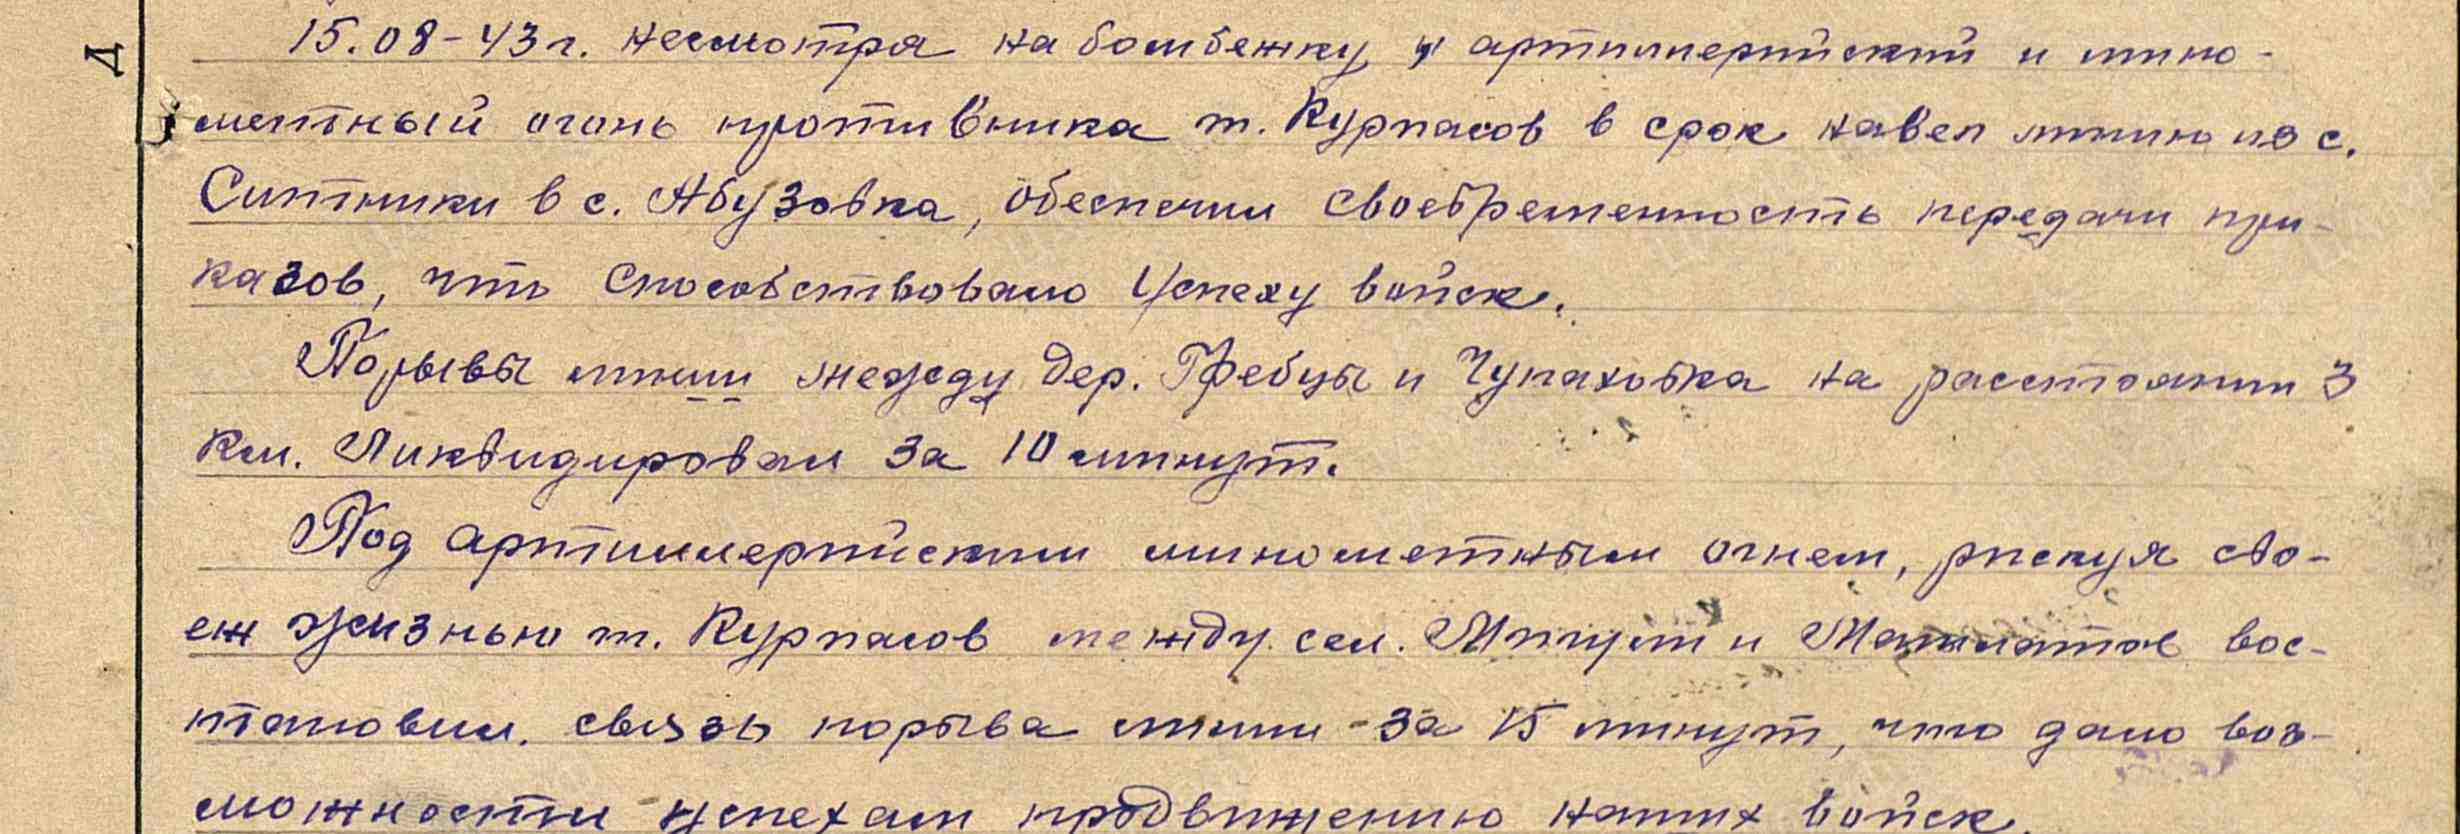 15.08-43г. несмотря на бомбежку и артиллерийский и мино-
метный огонь противника т. Курпасов в срок навел линию из с.
Ситники в с. Абузовка, обеспечил своевременность передачи при-
казов, что способствовало успеху войск.
Порывы линии между дер. Гребцы и Чупаховка на расстоянии 3
км. Ликвидировал за 10 минут.
Под артиллерийским минометным огнем, рискуя сво-
ей жизнью т. Курпасов между сел. и вос-
становил. связь порыва линии за 15 минут, что дало воз-
можности успехам продвижению наших войск.